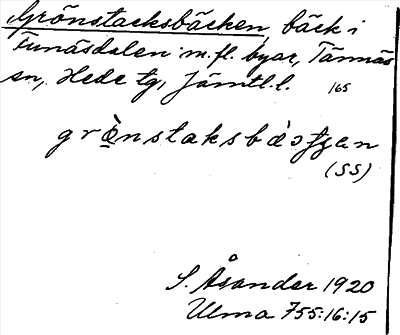 Grönstacksbäcken, bäck i
Funäsdalen m.fl. byar, Tännäs
sn, Hede tg, Jämtl.l. 165
(SS)
S. Åsander 1920
Ulma 755:16:15